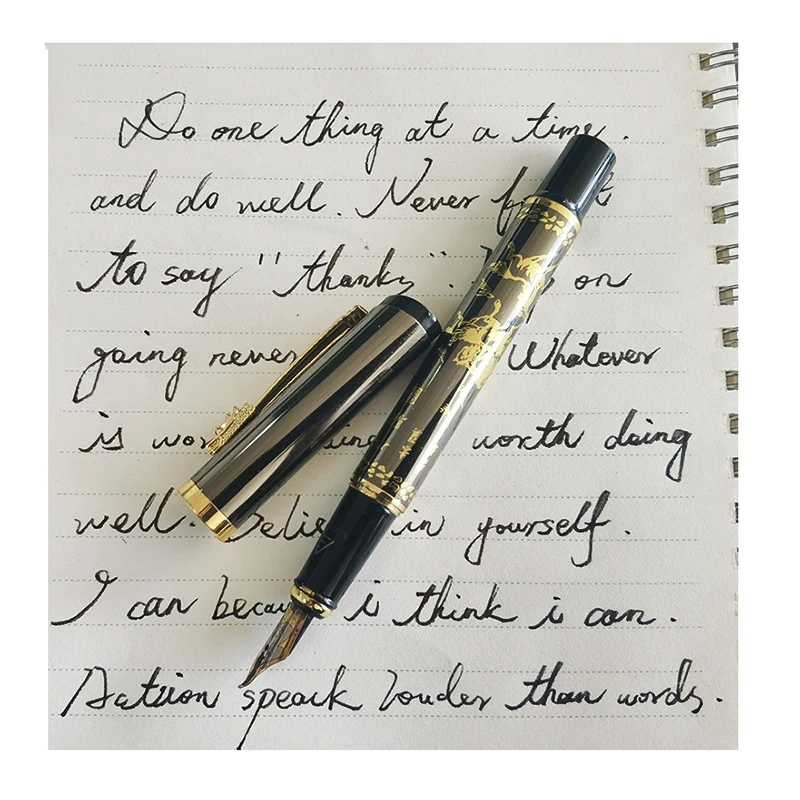 Do one thing at a time.
and do well. Never
to say "thanks". on
going never Whatever
is worth doing
well. in yourself.
I can because i think i can.
Aatiion speack louder than words.